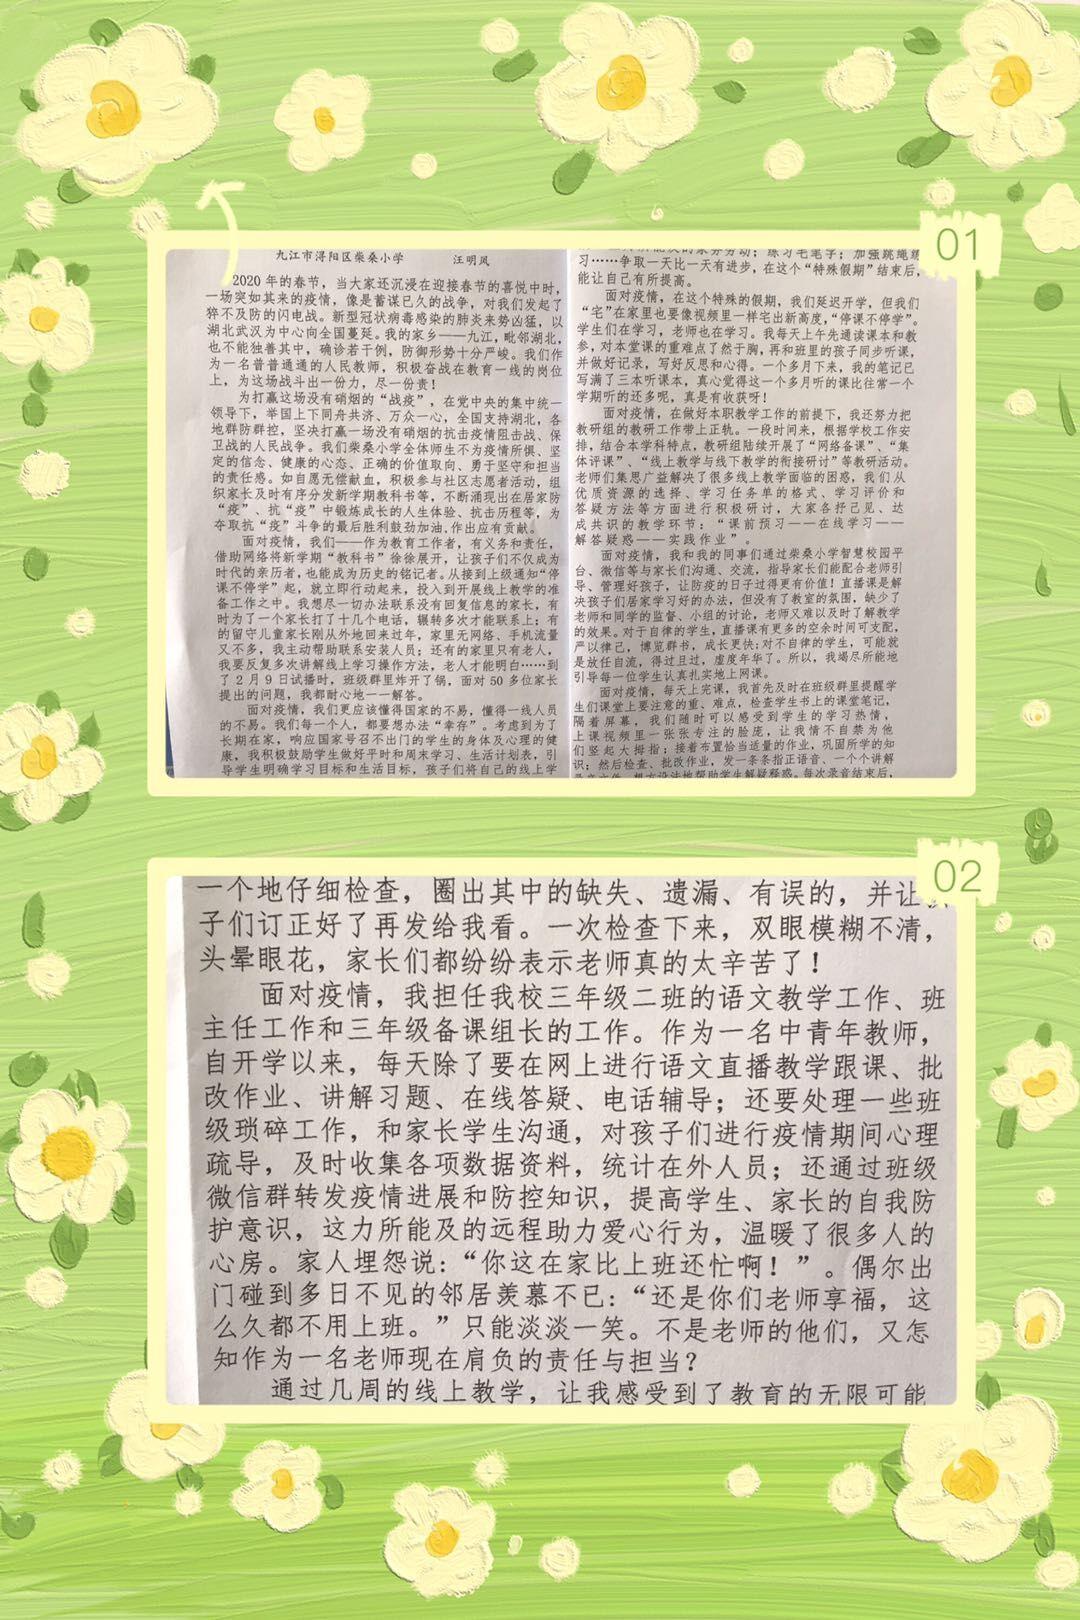 01
九江市浔阳区柴桑小学 汪明凤
2020 年的春节，当大家还沉浸在迎接春节的喜悦中时，
一场突如其来的疫情，像是蓄谋已久的战争，对我们发起了
猝不及防的闪电战。新型冠状病毒感染的肺炎来势凶猛，以
湖北武汉为中心向全国蔓延。我的家乡——九江，毗邻湖北，
也不能独善其中，确诊若干例，防御形势十分严峻。我们作
为一名普普通通的人民教师，积极奋战在教育一线的岗位
上，为这场战斗出一份力，尽一份责！
为打赢这场没有硝烟的“战疫”，在党中央的集中统一
领导下，举国上下同舟共济、万众一心，全国支持湖北，各
地群防群控，坚决打赢一场没有硝烟的抗击疫情阻击战、保
卫战的人民战争。我们柴桑小学全体师生不为疫情所惧、坚
定的信念、健康的心态、正确的价值取向、勇于坚守和担当
的责任感。如自愿无偿献血，积极参与社区志愿者活动，组
织家长及时有序分发新学期教科书等，不断涌现出在居家防
“疫”、抗“疫”中锻炼成长的人生体验、抗击历程等，为
夺取抗“疫”斗争的最后胜利鼓劲加油,作出应有贡献。
面对疫情，我们——作为教育工作者，有义务和责任，
借助网络将新学期“教科书”徐徐展开，让孩子们不仅成为
时代的亲历者，也能成为历史的铭记者。从接到上级通知“停
课不停学”起，就立即行动起来，投入到开展线上教学的准
备工作之中。我想尽一切办法联系没有回复信息的家长，有
时为了一个家长打了十几个电话，辗转多次才能联系上；有
的留守儿童家长刚从外地回来过年，家里无网络、手机流量
又不多，我主动帮助联系安装人员；还有的家里只有老人，
我要反复多次讲解线上学习操作方法，老人才能明白……到
了 2 月 9 日试播时，班级群里炸开了锅，面对 50 多位家长
提出的问题，我都耐心地一一解答。
面对疫情，我们更应该懂得国家的不易，懂得一线人员
的不易。我们每一个人，都要想办法“幸存”。考虑到为了
长期在家，响应国家号召不出门的学生的身体及心理的健
康，我积极鼓励学生做好平时和周末学习、生活计划表，引
导学生明确学习目标和生活目标，孩子们将自己的线上学
家务劳动；练习毛笔字；加强跳绳练
习……争取一天比一天有进步，在这个“特殊假期”结束后，
能让自己有所提高。
面对疫情，在这个特殊的假期，我们延迟开学，但我们
“宅”在家里也要像视频里一样宅出新高度，“停课不停学”。
学生们在学习，老师也在学习。我每天上午先通读课本和教
参，对本堂课的重难点了然于胸，再和班里的孩子同步听课，
并做好记录，写好反思和心得。一个多月下来，我的笔记已
写满了三本听课本，真心觉得这一个多月听的课比往常一个
学期听的还多呢，真是有收获呀！
面对疫情，在做好本职教学工作的前提下，我还努力把
教研组的教研工作带上正轨。一段时间来，根据学校工作安
排，结合本学科特点，教研组陆续开展了“网络备课”、“集
体评课”、“线上教学与线下教学的衔接研讨”等教研活动。
老师们集思广益解决了很多线上教学面临的困惑，我们从
优质资源的选择、学习任务单的格式、学习评价和
答疑方法等方面进行积极研讨，大家各抒己见、达
成共识的教学环节：“课前预习——在线学习——
解答疑惑——实践作业”。
面对疫情，我和我的同事们通过柴桑小学智慧校园平
台、微信等与家长们沟通、交流，指导家长们能配合老师引
导、管理好孩子，让防疫的日子过得更有价值！直播课是解
决孩子们居家学习好的办法，但没有了教室的氛围，缺少了
老师和同学的监督、小组的讨论，老师又难以及时了解教学
的效果。对于自律的学生，直播课有更多的空余时间可支配，
严以律己，博览群书，成长更快；对不自律的学生，可能就
是放任自流，得过且过，虚度年华了。所以，我竭尽所能地
引导每一位学生认真扎实地上网课。
面对疫情，每天上完课，我首先及时在班级群里提醒学
生们课堂上要注意的重、难点，检查学生书上的课堂笔记，
隔着屏幕，我们随时可以感受到学生的学习热情，
上课视频里一张张专注的脸庞，让我情不自禁为他
们竖起大拇指；接着布置恰当适量的作业，巩固所学的知
识；然后检查、批改作业，发一条条指正语音、一个个讲解
录音文件，想方设法地帮助学生解疑释惑。每次录音结束后，
02
一个地仔细检查，圈出其中的缺失、遗漏、有误的，并让孩
子们订正好了再发给我看。一次检查下来，双眼模糊不清，
头晕眼花，家长们都纷纷表示老师真的太辛苦了！
面对疫情，我担任我校三年级二班的语文教学工作、班
主任工作和三年级备课组长的工作。作为一名中青年教师，
自开学以来，每天除了要在网上进行语文直播教学跟课、批
改作业、讲解习题、在线答疑、电话辅导；还要处理一些班
级琐碎工作，和家长学生沟通，对孩子们进行疫情期间心理
疏导，及时收集各项数据资料，统计在外人员；还通过班级
微信群转发疫情进展和防控知识，提高学生、家长的自我防
护意识，这力所能及的远程助力爱心行为，温暖了很多人的
心房。家人埋怨说：“你这在家比上班还忙啊！”。偶尔出
门碰到多日不见的邻居羡慕不已：“还是你们老师享福，这
么久都不用上班。”只能淡淡一笑。不是老师的他们，又怎
知作为一名老师现在肩负的责任与担当？
通过几周的线上教学，让我感受到了教育的无限可能